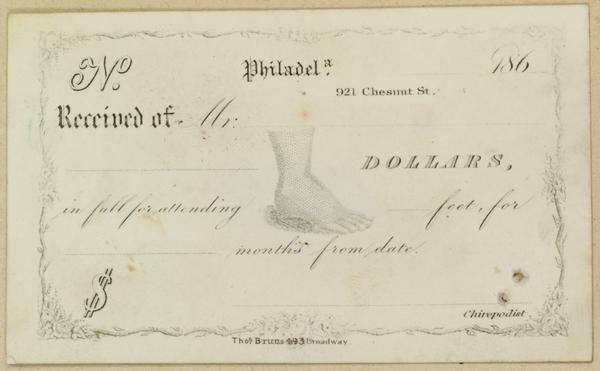 No. Philadela. 186
921 Chesnut St.
Received of Mr:
DOLLARS,
in full for attending feet, for
months from date.
$
Chiropodist.
Thos. Bruns 443 Broadway.